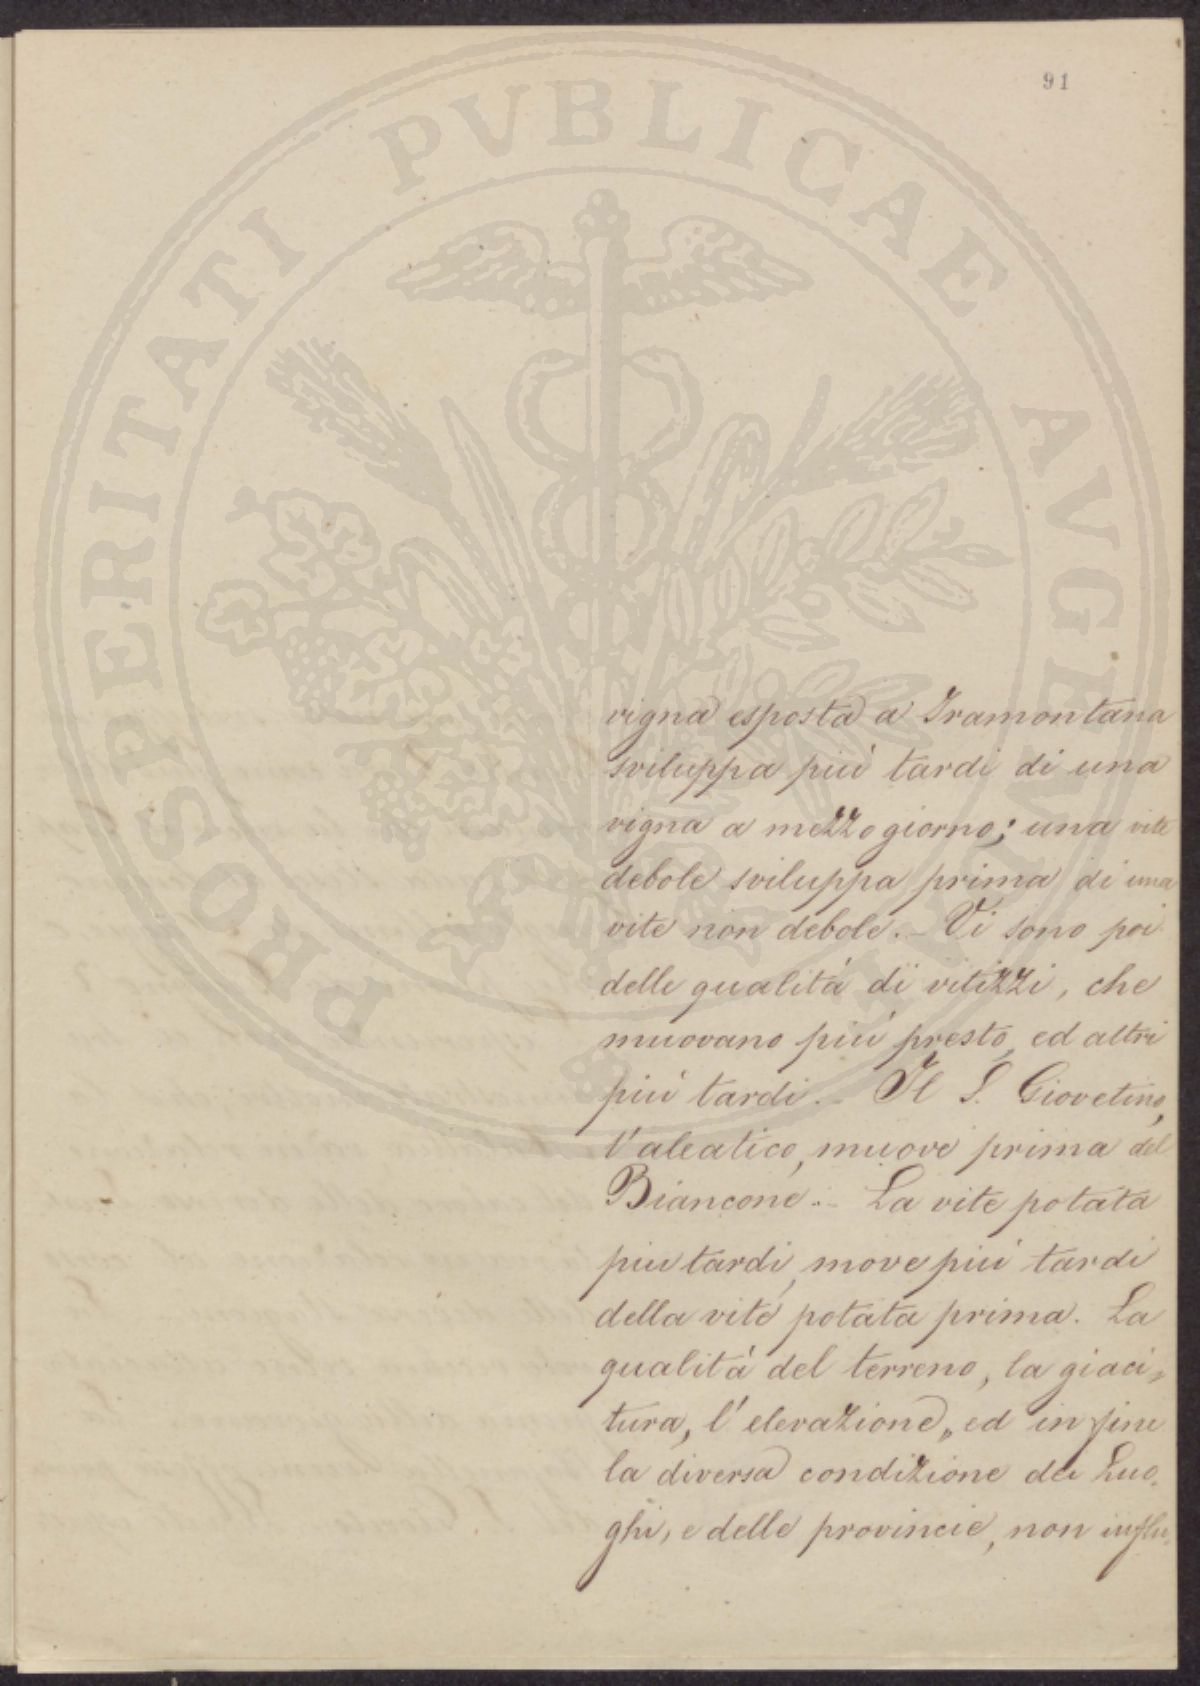 91
PROSPERITATI PUBLICAE AUGENDAE
vigna esposta a Tramontana
sviluppa più tardi di una
vigna a mezzogiorno; una vite
debole sviluppa prima di una
vite non debole. – Vi sono poi
delle qualità di vitizzi, che
muovano più presto, ed altri
più tardi. – Il S. Giovetino,
l'aleatico, muove prima del
Biancone. – La vite potata
più tardi, move più tardi
della vite potata prima. La
qualità del terreno, la giaci„
tura, l'elevazione, ed in fine
la diversa condizione dei Luo„
ghi, e delle provincie, non influ„